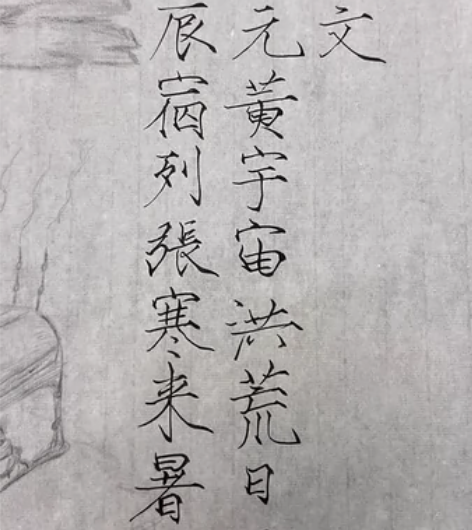 文
元黃宇宙洪荒日
辰宿列張寒来暑